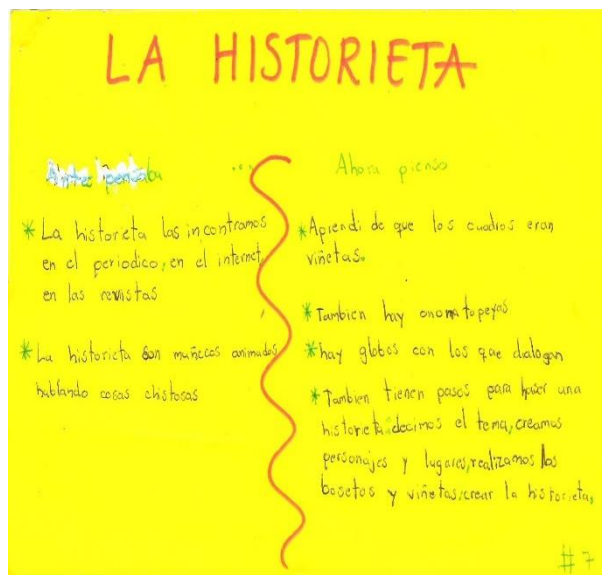 LA HISTORIETA
Antes pensaba
... Ahora pienso
* La historieta las incontramos
en el periodico, en el internet,
en las revistas
* La historieta son muñecos animados
hablando cosas chistosas
* Aprendi de que los cuadros eran
viñetas.
* Tambien hay onomatopeyas
* hay globos con los que dialogan
* Tambien tienen pasos para hacer una
historieta: decimos el tema, creamos
personajes y lugares, realizamos los
bosetos y viñetas, crear la historieta.
# 7